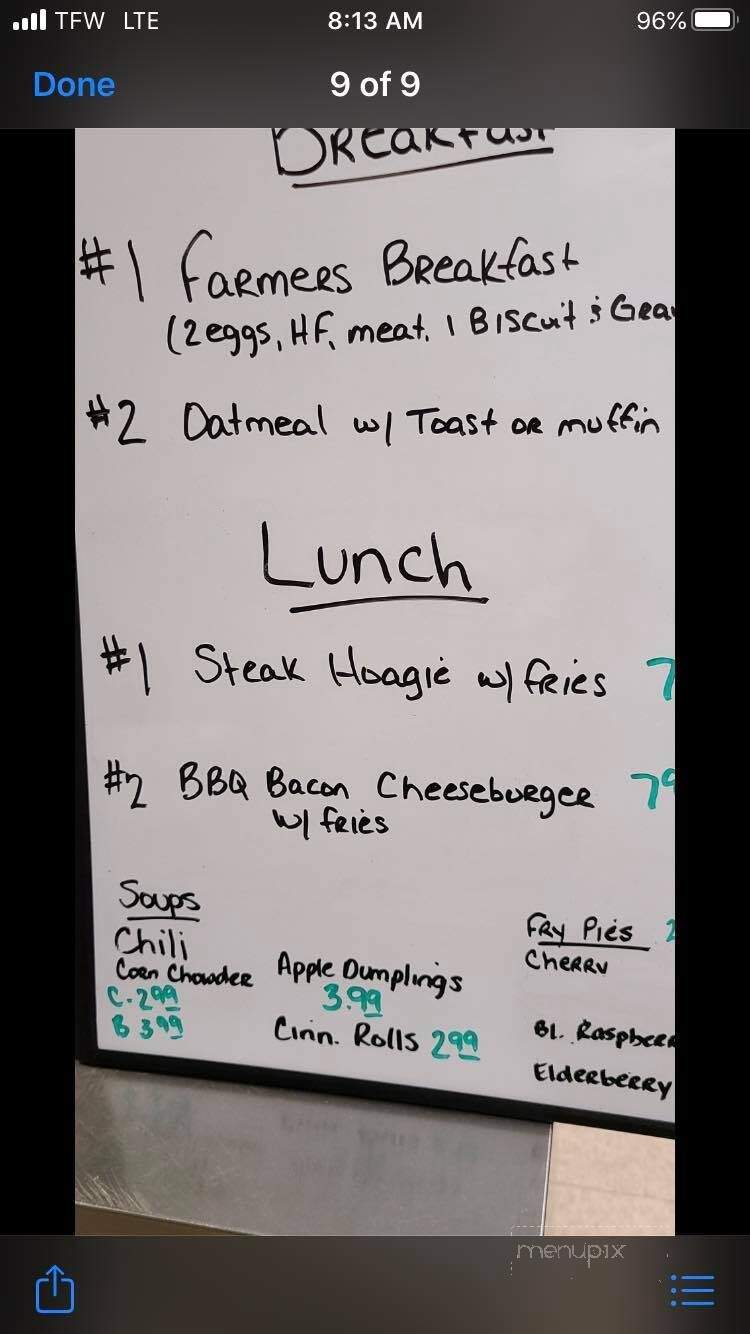 TFW LTE 8:13 AM 96%
Done 9 of 9
Breakfast
#1 Farmers Breakfast
(2eggs, HF, meat, 1 Biscuit &
#2 Oatmeal w/ Toast or muffin
Lunch
#1 Steak Hoagie w/ fries 7
#2 BBQ Bacon Cheeseburger 79
w/ fries
Soups
Chili
Corn Chowder
C. 2.99
B 3.99
Apple Dumplings
3.99
Cinn. Rolls 2.99
Fry Pies 2
Cherry
Bl. Raspberr
Elderberry
menupix